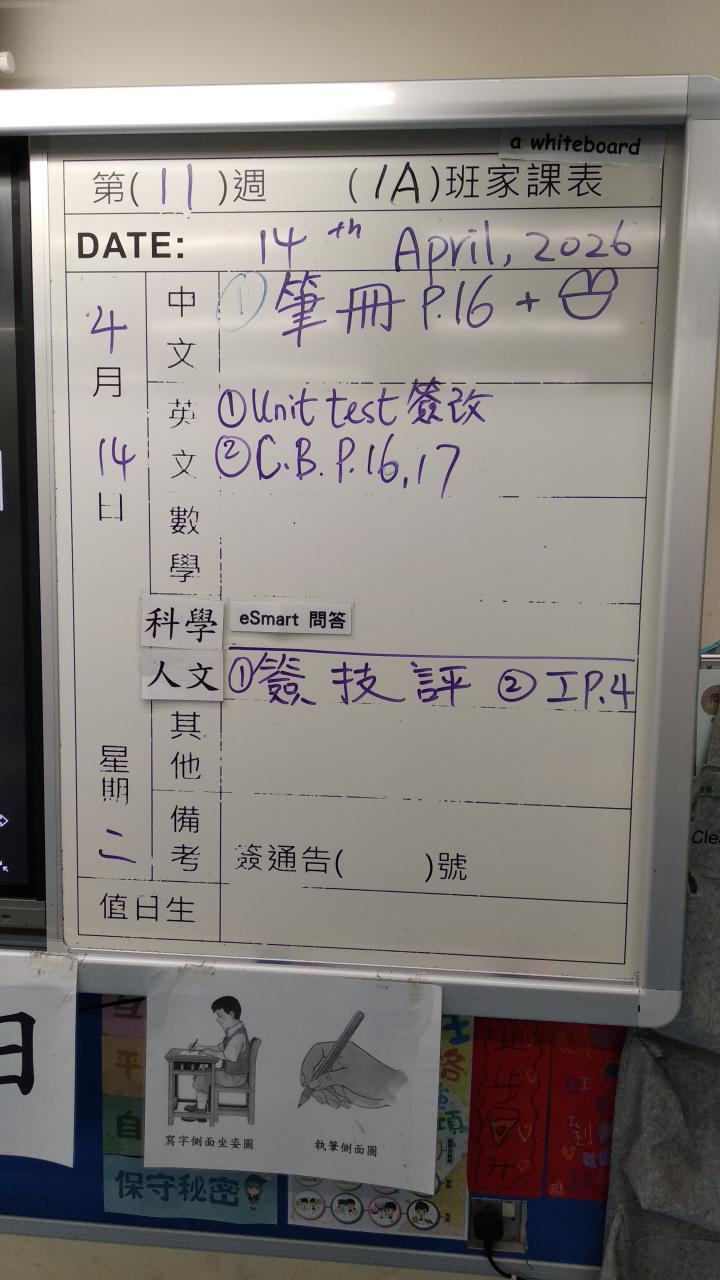 a whiteboard
第( 11 )週 (1A)班家課表
DATE: 14th April, 2026
4月14日 星期二
中文 ① 筆冊 P.16 +
英文 ① Unit test 簽改
② C.B. P.16,17
數學
科學 eSmart 問答
人文 ① 簽技評 ② 工P.4
其他
備考 簽通告( )號
值日生
日
寫字側面坐姿圖
執筆側面圖
保守秘密